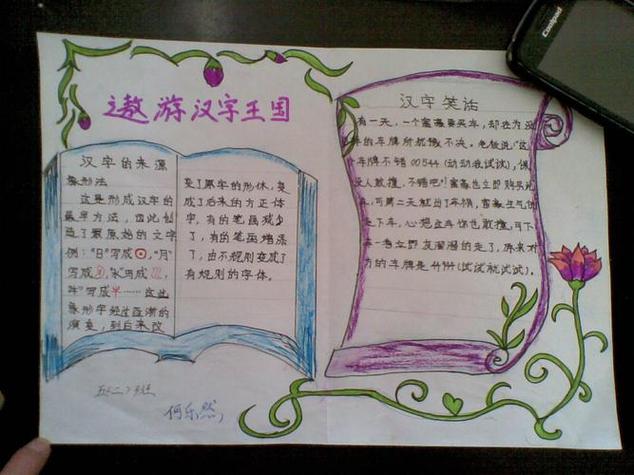 遨游汉字王国
汉字的来源
象形法
这是形成汉字的
最早方法，因此创
造了最原始的文字
例："日"写成⊙，"月"
写成
写成 …… 这些
象形字经过逐渐的
演变，到后来改
变了原字的形体，变
成了后来的方正体
字，有的笔画减少
了，有的笔画增添
了，由不规则变成了
有规则的字体。
汉字笑话
有一天，一个富豪要买车，却在为没
的车牌所犹豫不决，老板说："这
车牌不错00544(动动我试试)，保
没人敢撞，不错吧！富豪也立即购买此
车，可第二天就出了车祸，富豪生气
走下车，心想这车你也敢撞，可下
车一看立即灰溜溜的走了，原来对
方的车牌是44944(试试就试试)。
五(二)班
何乐然
Coolpad